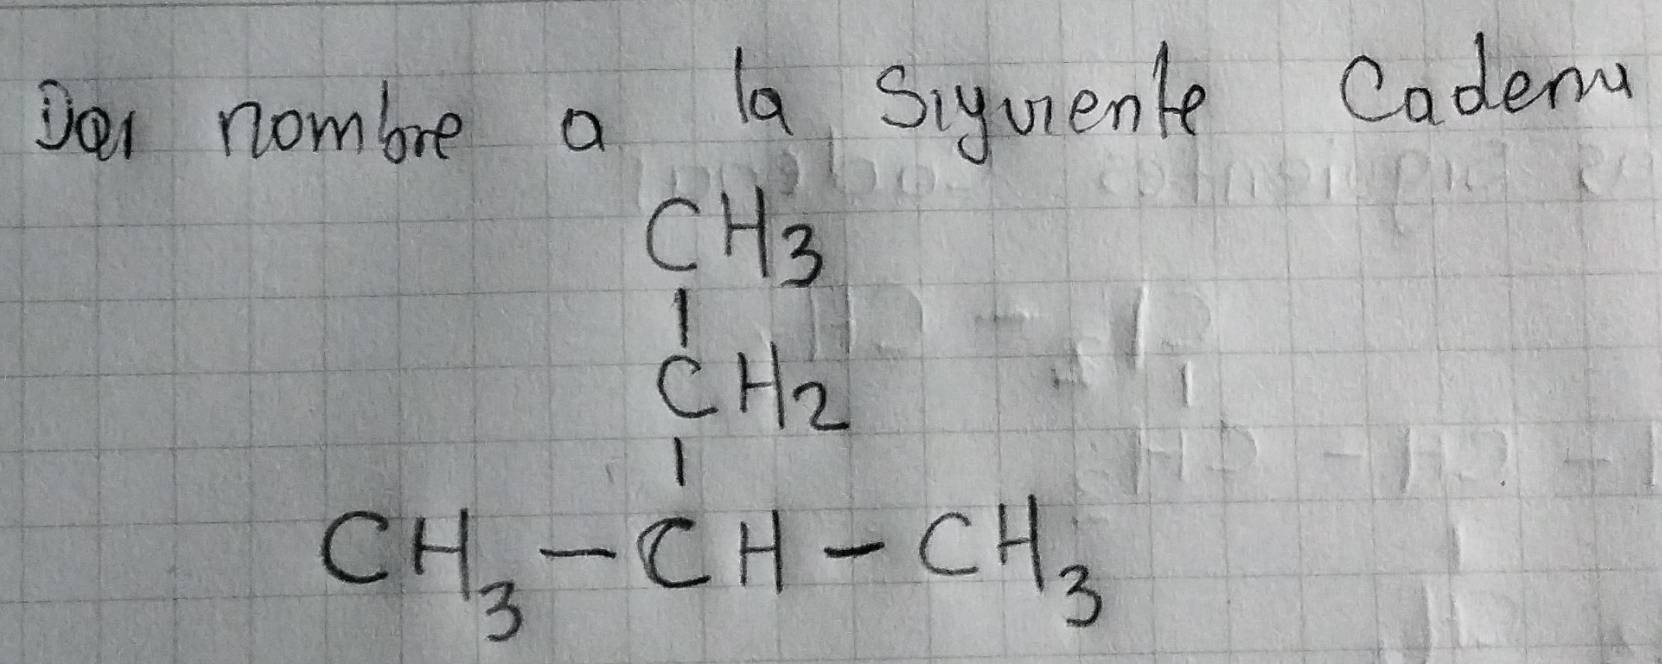 Dar nombre a la Siguiente Cadena
CH3
|
CH2
|
CH3 - CH - CH3